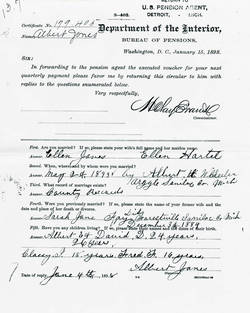 RETURN TO
U. S. PENSION AGENT,
DETROIT, MICH.
3-402.
Certificate No.
Name, Albert Jones
Department of the Interior,
BUREAU OF PENSIONS,
Washington, D. C., January 15, 1898.
SIR:
In forwarding to the pension agent the executed voucher for your next
quarterly payment please favor me by returning this circular to him with replies to
the questions enumerated below.
Very respectfully,
Commissioner.
First. Are you married? If so, please state your wife's full name and her maiden name.
Ellen Jones Ellen Hartel
Second. When, where, and by whom were you married?
May by Albert Wheeler
Argyle Sanilac Co. Mich
Third. What record of marriage exists?
County Records
Fourth. Were you previously married? If so, please state the name of your former wife and
the date and place of her death or divorce.
Sarah Jane Sanilac Co Mich
December
Fifth. Have you any children living? If so, please state their names and the dates of their birth.
Albert E David D. 24 years,
26 years,
18 years, Fred F. 16 years,
Date of reply, June 4th, 1898 Albert Jones